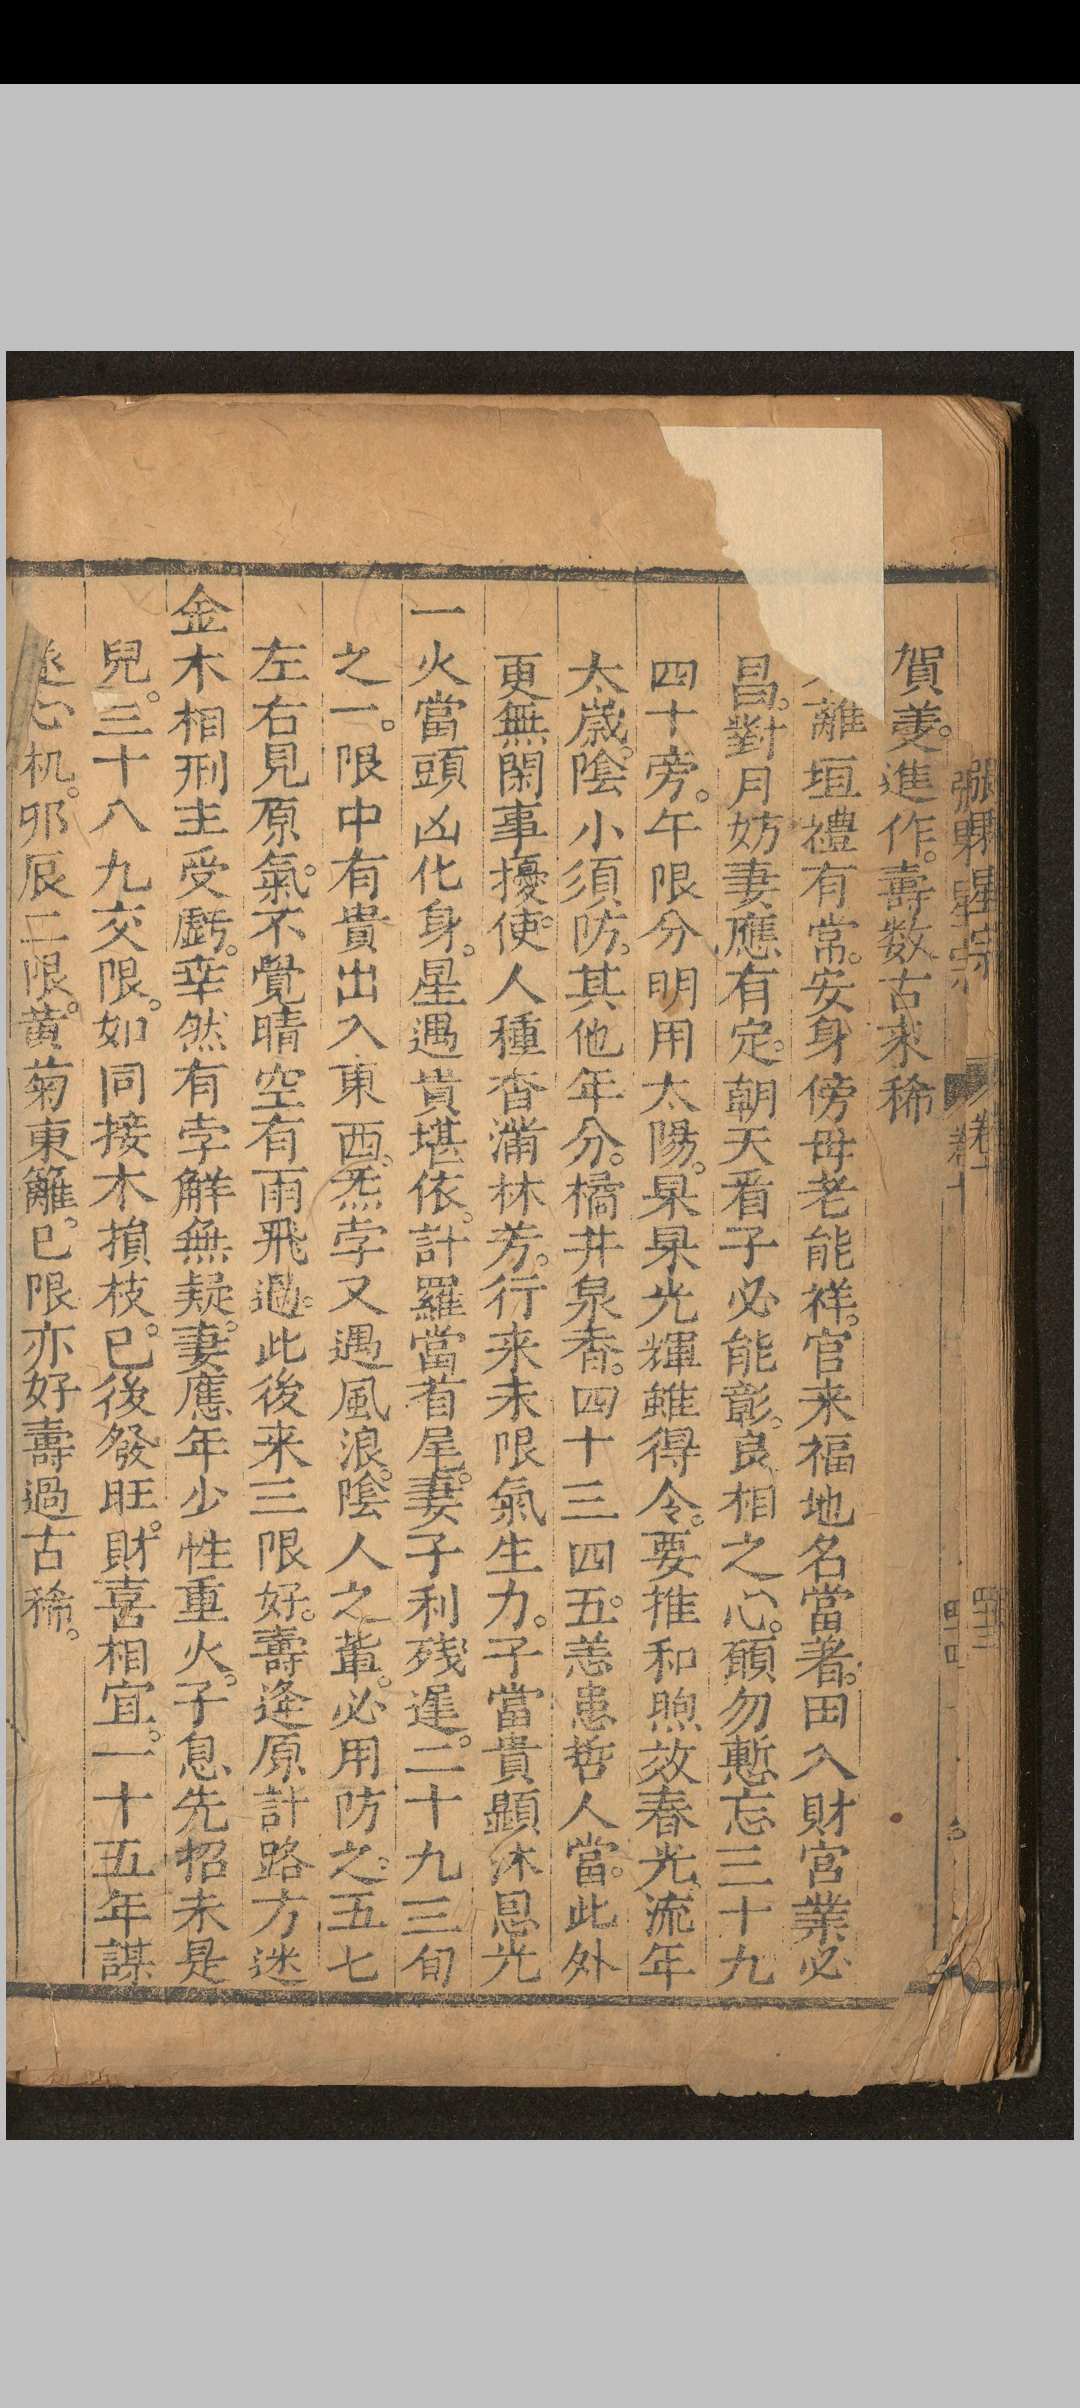 賀羙。進作。壽数古来稀
離垣禮有常。安身傍母老能祥。官来福地名當著。田入財宮業必
昌。對月妨妻應有定。朝天看子必能彰。良相之心。願勿慙忘三十九
四十旁。午限分明用太陽。杲杲光輝雖得令。要推和煦效春光。流年
太歲。陰小須防。其他年分。橘井泉香。四十三四五。恙患哲人當。此外
更無閑事擾。使人種杏滿林芳。行来未限氣生力。子當貴顯沐恩光
一火當頭凶化身。星遇貴堪依。計羅當首尾。妻子利殘遲。二十九三旬
之一。限中有貴出入東西。炁孛又遇風浪。陰人之輩。必用防之。五七
左右見原氣。不覺晴空有雨飛過。此後来三限好。壽逢原計路方迷
金木相刑主受虧。幸然有孛解無疑。妻應年少性重火。子息先招未是
兒。三十八九交限。如同接木損枝。已後發旺。財喜相宜。一十五年謀
遂心机。卯辰二限。黄菊東籬。巳限亦好壽過古稀。